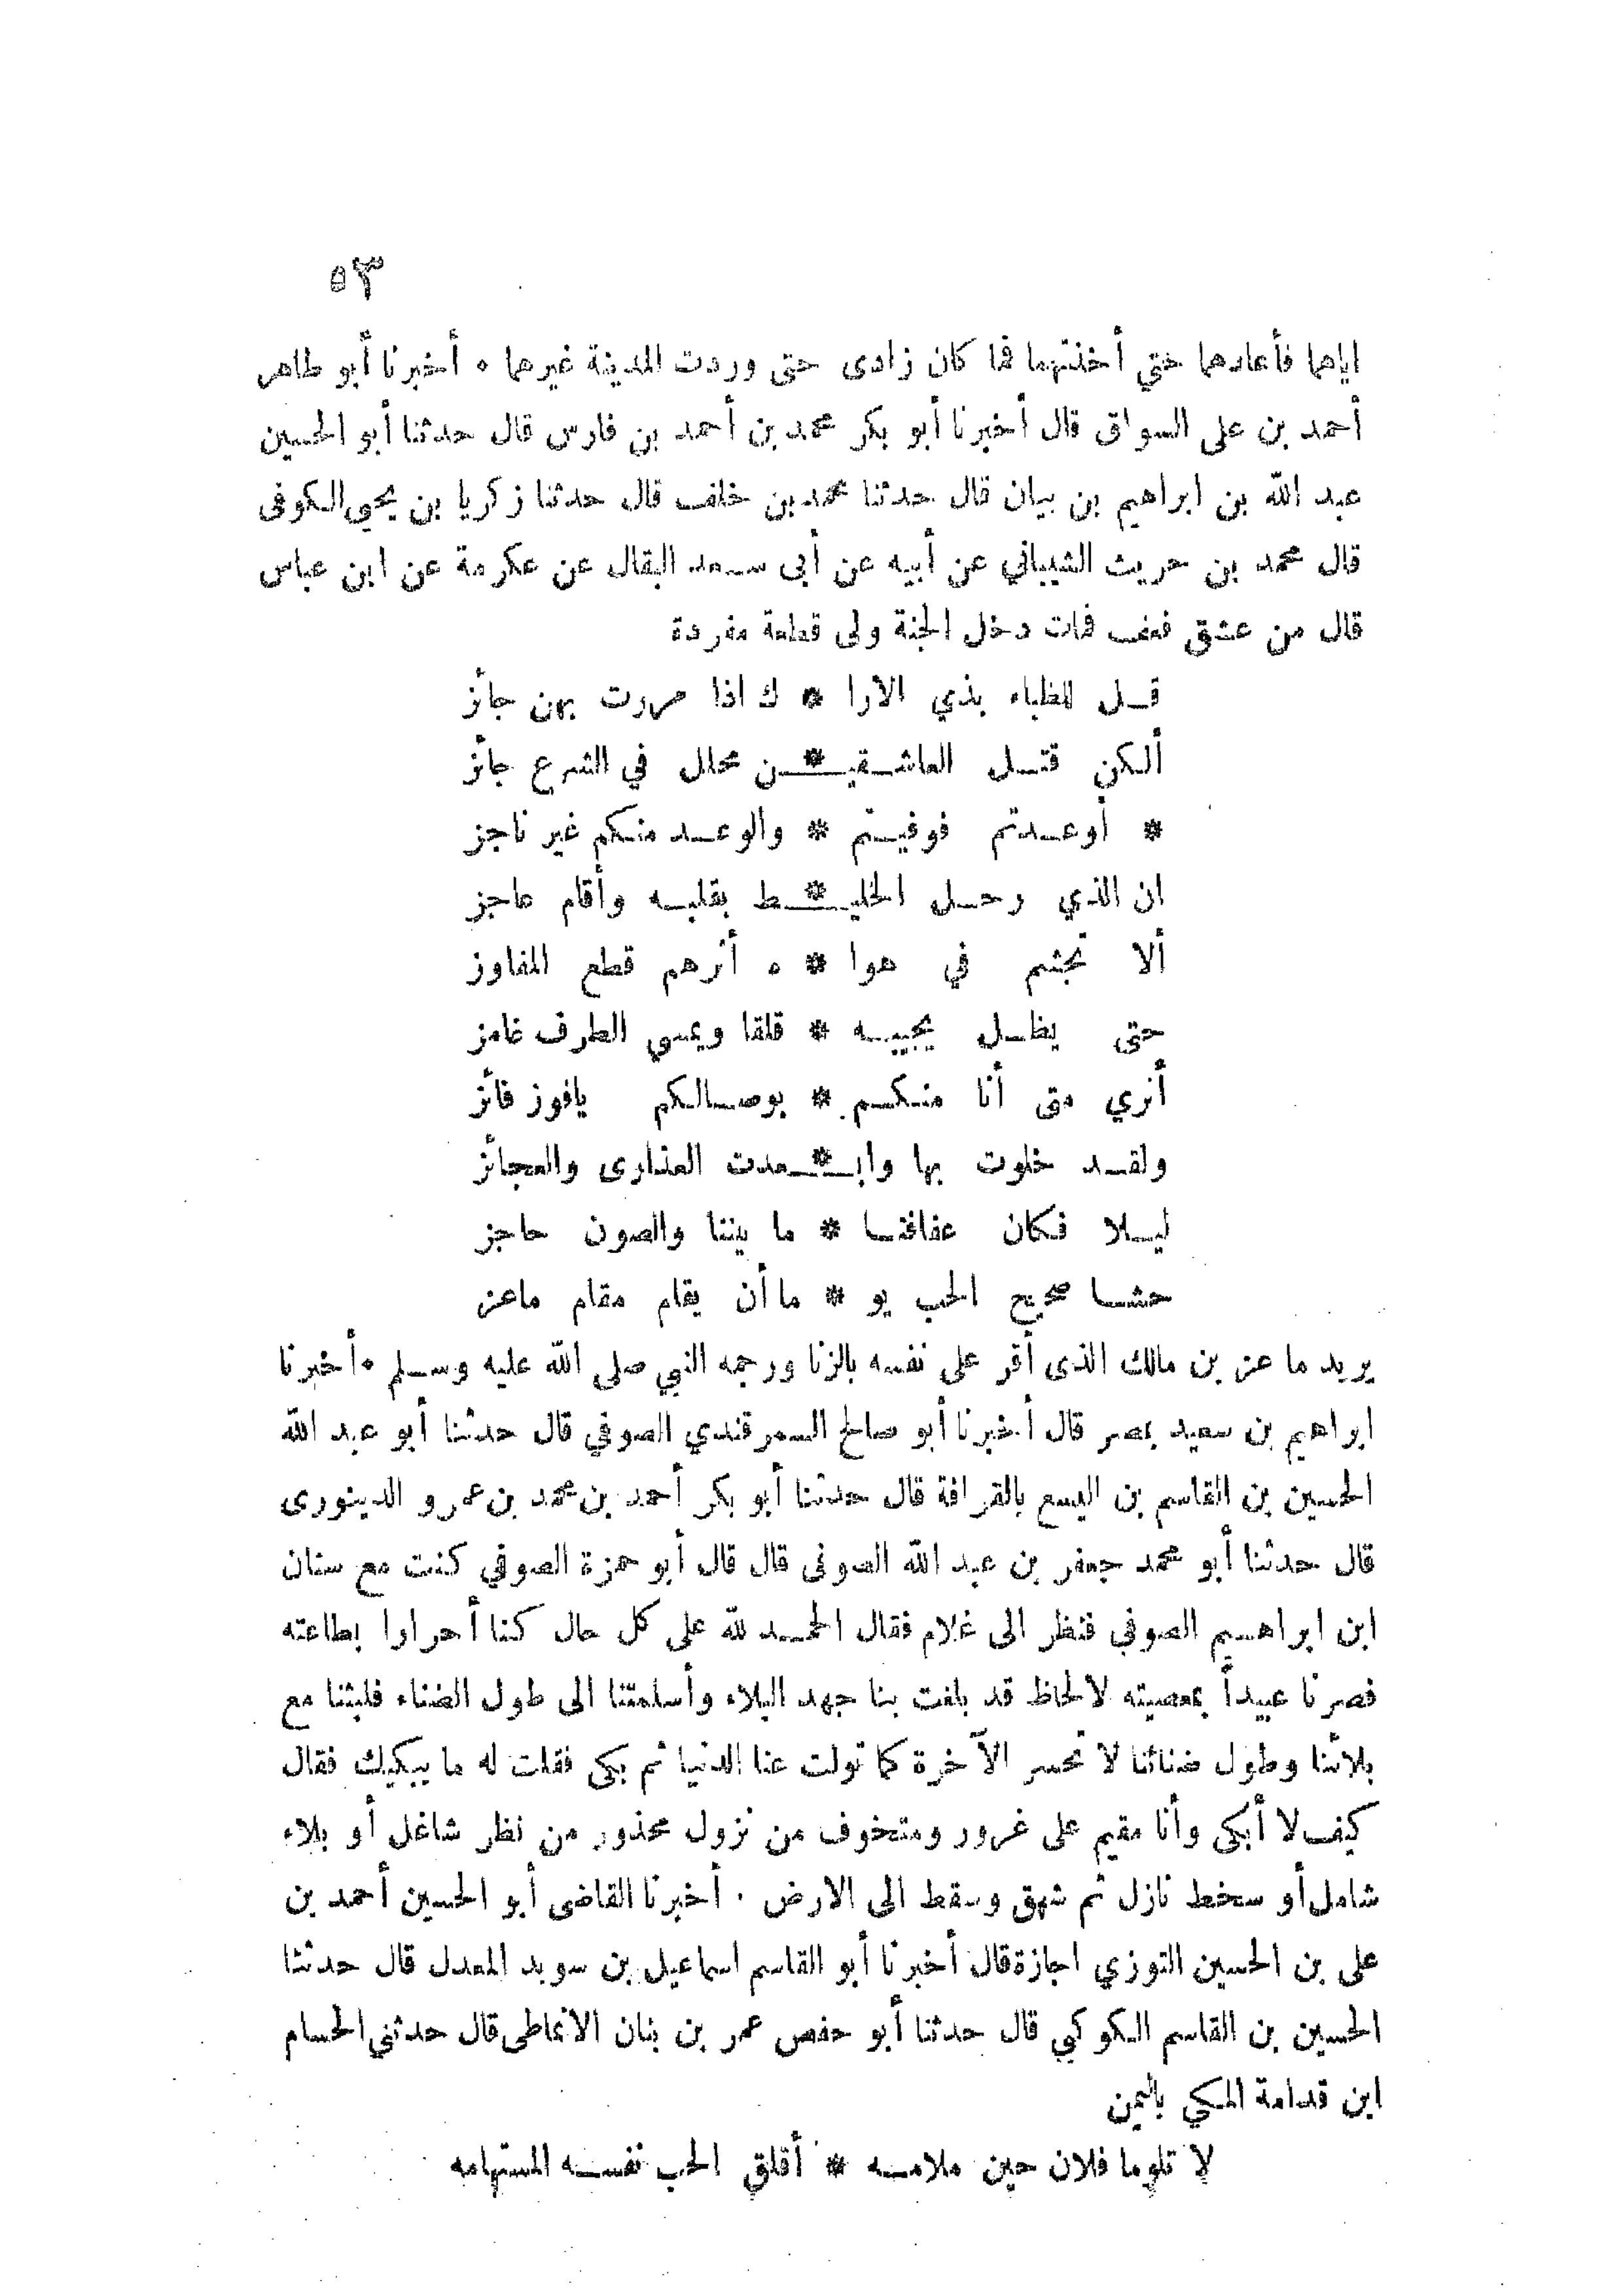 ٥٣
اياهما فأعادهما حتي أخذتهما فما كان زادى حتى وردت المدينة غيرهما ٠ أخبرنا أبو طاهر
أحمد بن على السواق قال أخبرنا أبو بكر محمد بن أحمد بن فارس قال حدثنا أبو الحسين
عبد الله بن ابراهيم بن بيان قال حدثنا محمد بن خلف قال حدثنا زكريا بن يحيى الكوفى
قال محمد بن حريث الشيباني عن أبيه عن أبى سعد البقال عن عكرمة عن ابن عباس
قال من عشق فعف فمات دخل الجنة ولى قطعة مفردة
قل للظباء بذي الارا * ك اذا مررت بهن جائز
ألكن قتل العاشقيـ * ـن محلل في الشرع جائز
* أوعدتم فوفيتم * والوعد منكم غير ناجز
ان الذي رحل الخليـ * ـط بقلبه وأقام عاجز
ألا تجشم في هوا * ه أثرهم قطع المفاوز
حتى يظل يجيبه * قلقا ويمسي الطرف غامز
أترى متى أنا منكم * بوصالكم يافوز فائز
ولقد خلوت بها وابـ * ـعدت العذارى والعجائز
ليلا فكان عفافنا * ما بيننا والصون حاجز
حشا صحيح الحب يو * ما أن يقام مقام ماعز
يريد ماعز بن مالك الذى أقر على نفسه بالزنا ورجمه النبي صلى الله عليه وسلم ٠ أخبرنا
ابراهيم بن سعيد بمصر قال أخبرنا أبو صالح السمرقندي الصوفي قال حدثنا أبو عبد الله
الحسين بن القاسم بن اليسع بالقرافة قال حدثنا أبو بكر أحمد بن محمد بن عمرو الدينورى
قال حدثنا أبو محمد جعفر بن عبد الله الصوفى قال قال أبو حمزة الصوفي كنت مع سنان
ابن ابراهيم الصوفي فنظر الى غلام فقال الحمد لله على كل حال كنا أحرارا بطاعته
فصرنا عبيداً بمعصيته لالحاظ قد بلغت بنا جهد البلاء وأسلمتنا الى طول الضناء فلبثنا مع
بلائنا وطول ضنائنا لا نخسر الآخرة كما تولت عنا الدنيا ثم بكى فقلت له ما يبكيك فقال
كيف لا أبكى وأنا مقيم على غرور ومتخوف من نزول محذور من نظر شاغل أو بلاء
شامل أو سخط نازل ثم شهق وسقط الى الارض ٠ أخبرنا القاضى أبو الحسين أحمد بن
على بن الحسين التوزي اجازة قال أخبرنا أبو القاسم اسماعيل بن سويد المعدل قال حدثنا
الحسين بن القاسم الكوكبي قال حدثنا أبو حفص عمر بن بنان الانماطى قال حدثني الحسام
ابن قدامة المكي باليمن
لا تلوما فلان حين ملامه * أقلق الحب نفسه المستهامه